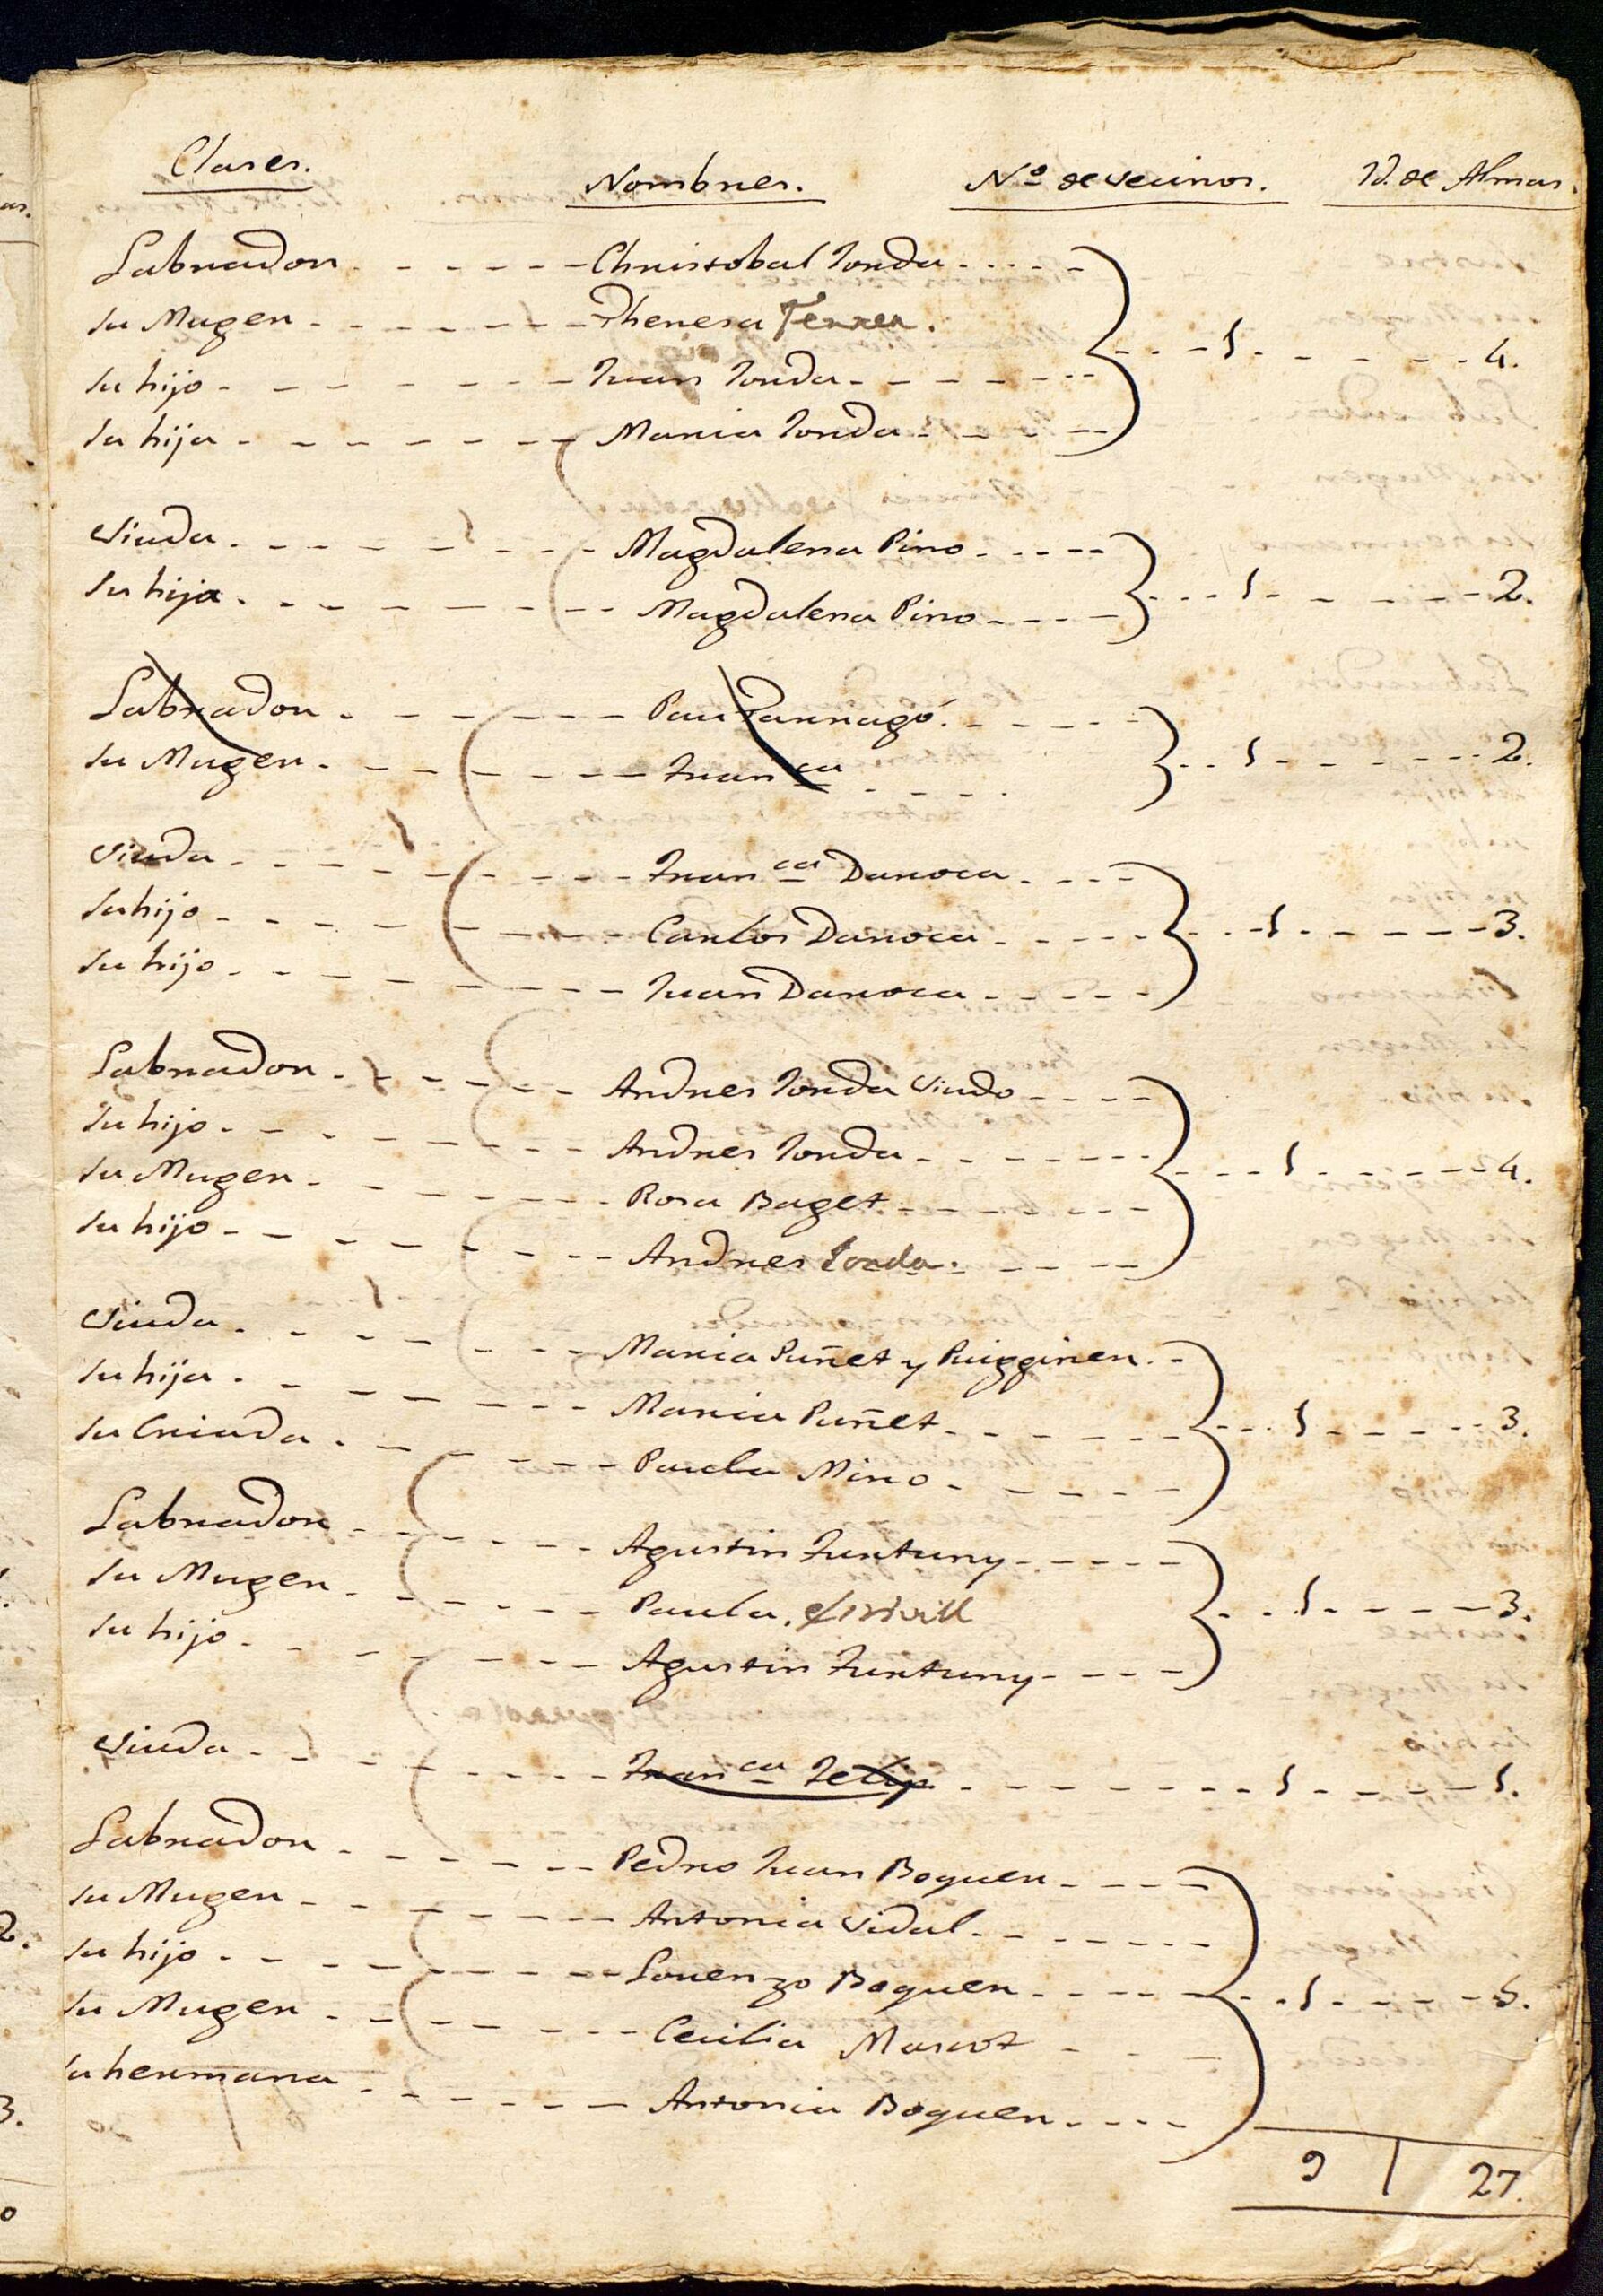 Clases. Nombres. No. de vecinos. Yd. de Almas.
Labrador Christobal Jorda
su Muger Theresa Ferrer.
su hijo Juan Jorda 1 4.
su hija Maria Jorda
viuda Magdalena Piro
su hija Magdalena Piro 1 2.
Labrador Pau Parragó.
su Muger Franca 1 2.
viuda Franca Daroca
su hijo Carlos Daroca 1 3.
su hijo Juan Daroca
Labrador Andres Jorda viudo
su hijo Andres Jorda
su Muger Rosa Baget 1 4.
su hijo Andres Jorda.
viuda Maria Puñet y Puigginer.
su hija Maria Puñet 1 3.
su Criada Paula Miro
Labrador Agustin Funtuny
su Muger Paula 1 3.
su hijo Agustin Funtuny
viuda Franca Felip 1 1.
Labrador Pedro Juan Boquer
su Muger Antonia Vidal
su hijo Lorenzo Boquer 1 5.
su Muger Cecilia
su hermana Antonia Boquer
9 27.